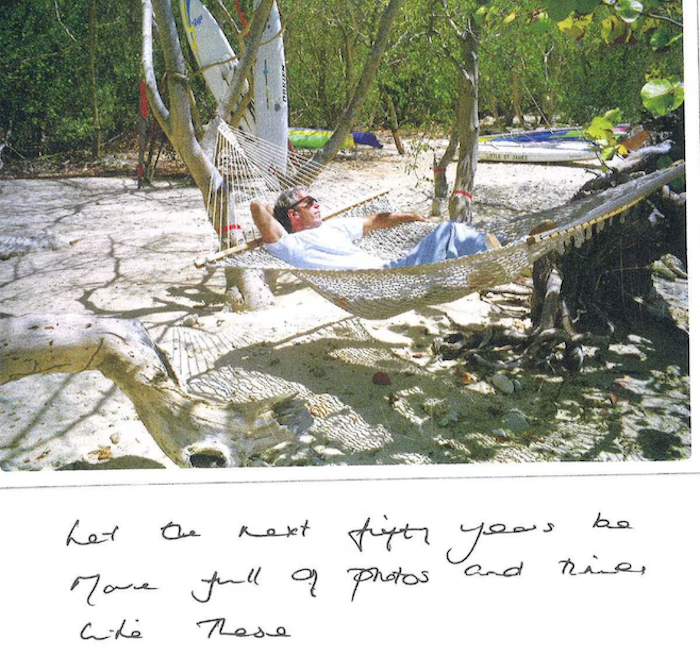 LITTLE ST. JAMES
Let the next fifty years be
More full of photos and times
like These